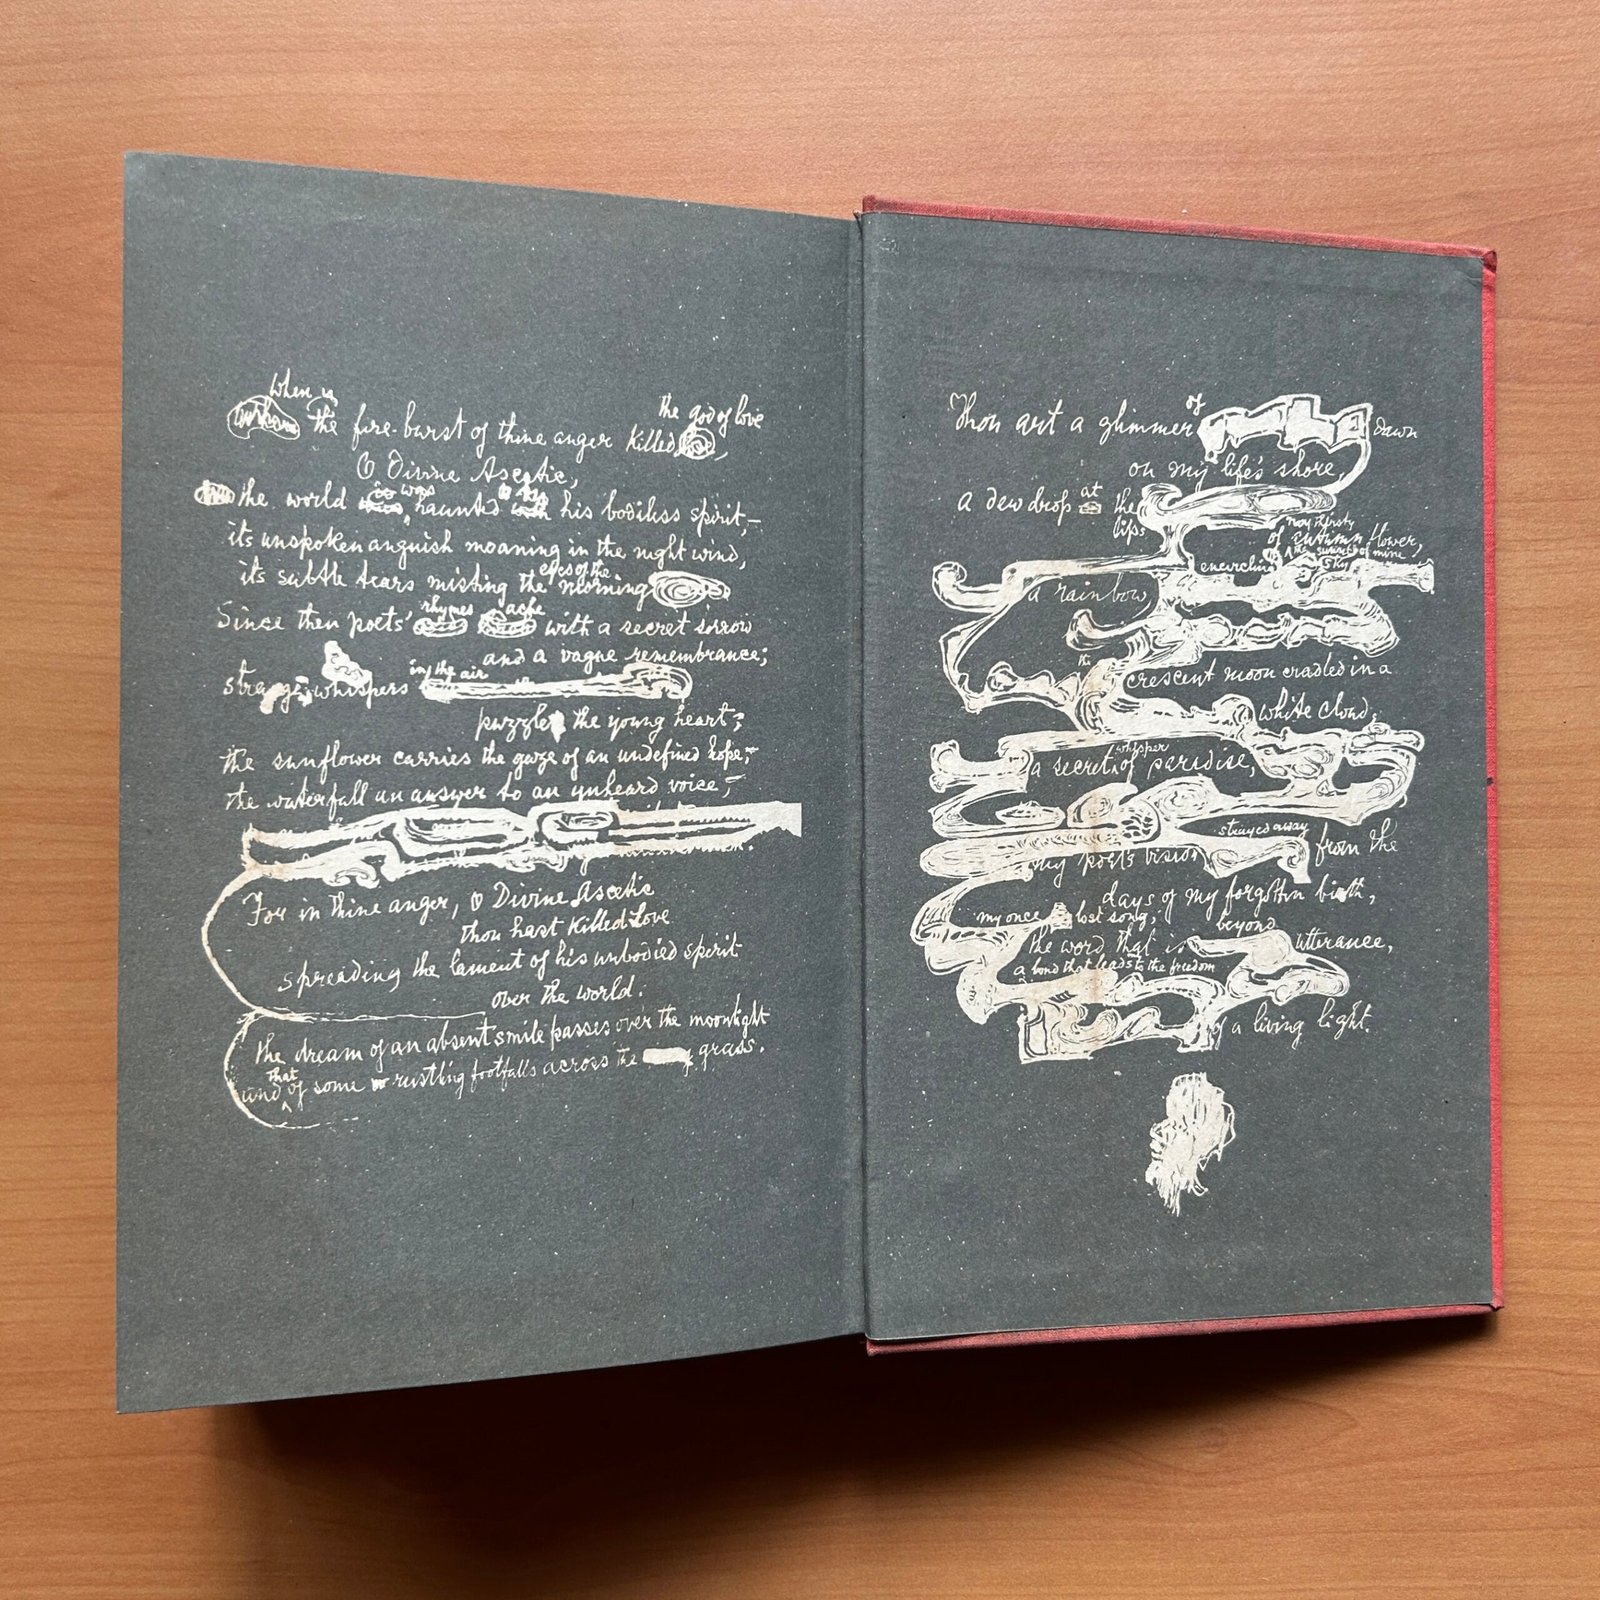 When in
the fire-burst of thine anger killed the god of love,
O Divine Ascetic,
the world was haunted by his bodiless spirit,—
its unspoken anguish moaning in the night wind,
its subtle tears misting the eyes of the morning
Since then poets' rhymes ache with a secret sorrow
and a vague remembrance;
strange whispers in the air
puzzle the young heart;
the sunflower carries the gaze of an undefined hope,—
the waterfall an answer to an unheard voice,—
For in thine anger, O Divine Ascetic
thou hast killed Love
spreading the lament of his unbodied spirit
over the world.
the dream of an absent smile passes over the moonlight
and that of some rustling footfalls across the grass.
Thou art a glimmer of dawn
on my life's shore,
a dewdrop at the
lips of autumn flower,
a rainbow encircling the sunset of mine sky
the crescent moon cradled in a
white cloud;
a secret whisper of paradise,
my poet's vision strayed away from the
days of my forgotten birth,
my once lost song;
the word that is beyond utterance,
a bond that leads to the freedom
of a living light.